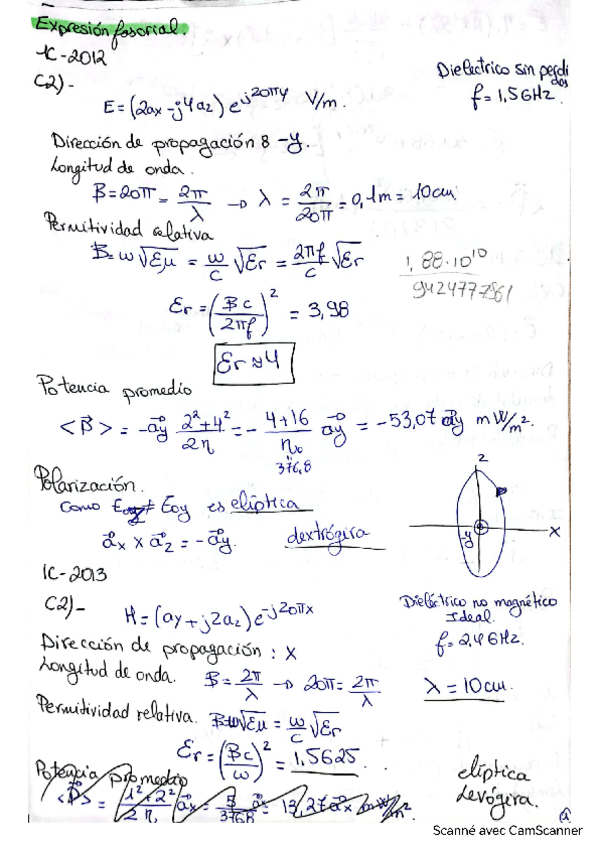 Expresión fasorial.
1C-2012
C2)-
Dieléctrico sin perdidas
f = 1,5 GHz.
E = (2ax - j4az) e^j20πy V/m.
Dirección de propagación 8 -y.
Longitud de onda.
β = 20π = 2π/λ → λ = 2π/20π = 0,1m = 10cm
Permitividad relativa
β = ω√εμ = ω/c √εr = 2πf/c √εr
1,88·10^10
εr = (βc/2πf)^2 = 3,98
εr ≈ 4
Potencia promedio
<P> = -ay (2²+4²)/2η = - (4+16)/η₀ ay = -53,07 ay mW/m².
376,8
Polarización.
es elíptica
ax x az = -ay. dextrógira
z
x
-y
1C-2013
C2)-
Dieléctrico no magnético
Ideal.
H = (ay + j2az) e^-j20πx
f = 2,4 GHz.
Dirección de propagación : x
Longitud de onda. β = 2π/λ → 20π = 2π/λ λ = 10cm.
Permitividad relativa. β = ω√εμ = ω/c √εr
εr = (βc/ω)^2 = 1,5625.
Potencia promedio
elíptica
Levógira.
Scanné avec CamScanner